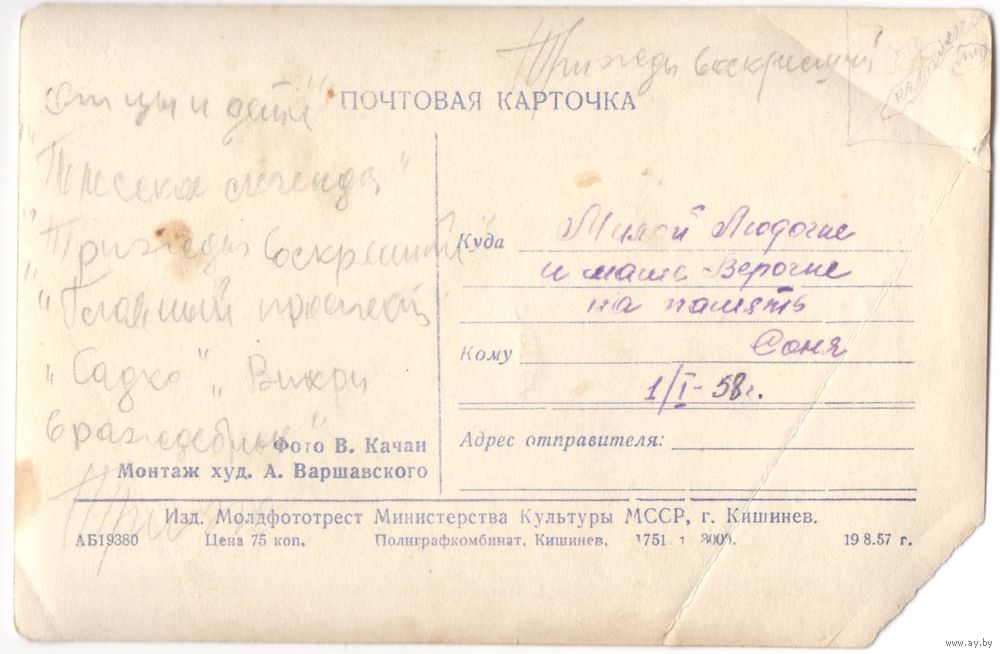 Трижды воскресший
Отцы и дети"
ПОЧТОВАЯ КАРТОЧКА
легенда"
"Трижды воскресший"
"Главный проспект"
"Садко" „Вихри
враждебные"
Куда Милой Людочке
и маме-Верочке
на память
Кому Соня
1/I-58г.
Адрес отправителя:
Фото В. Качан
Монтаж худ. А. Варшавского
Изд. Молдфототрест Министерства Культуры МССР, г. Кишинев.
АБ19380 Цена 75 коп. Полиграфкомбинат, Кишинев, 1751 т. 3000. 19 8.57 г.
www.ay.by